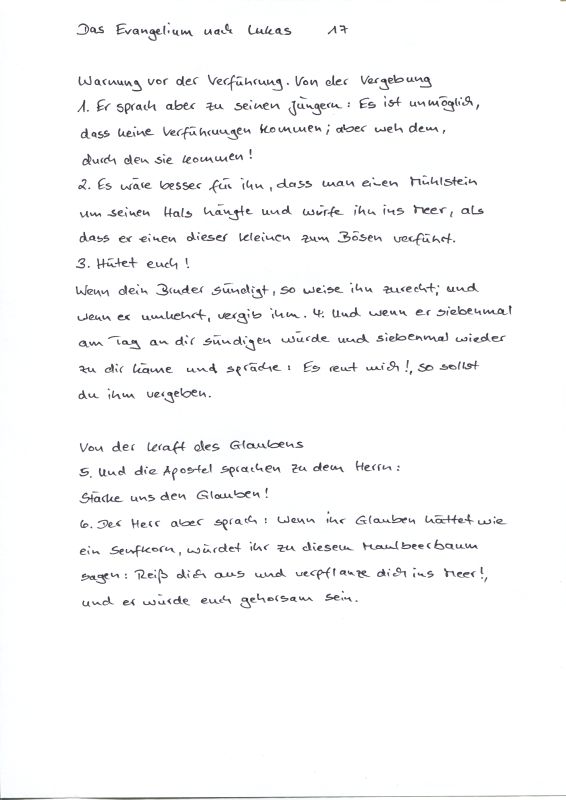 Das Evangelium nach Lukas 17
Warnung vor der Verführung. Von der Vergebung
1. Er sprach aber zu seinen Jüngern: Es ist unmöglich,
dass keine Verführungen kommen; aber weh dem,
durch den sie kommen!
2. Es wäre besser für ihn, dass man einen Mühlstein
um seinen Hals hängte und würfe ihn ins Meer, als
dass er einen dieser Kleinen zum Bösen verführt.
3. Hütet euch!
Wenn dein Bruder sündigt, so weise ihn zurecht; und
wenn er umkehrt, vergib ihm. 4. Und wenn er siebenmal
am Tag an dir sündigen würde und siebenmal wieder
zu dir käme und spräche: Es reut mich!, so sollst
du ihm vergeben.
Von der Kraft des Glaubens
5. Und die Apostel sprachen zu dem Herrn:
Stärke uns den Glauben!
6. Der Herr aber sprach: Wenn ihr Glauben hättet wie
ein Senfkorn, würdet ihr zu diesem Maulbeerbaum
sagen: Reiß dich aus und verpflanze dich ins Meer!,
und er würde euch gehorsam sein.